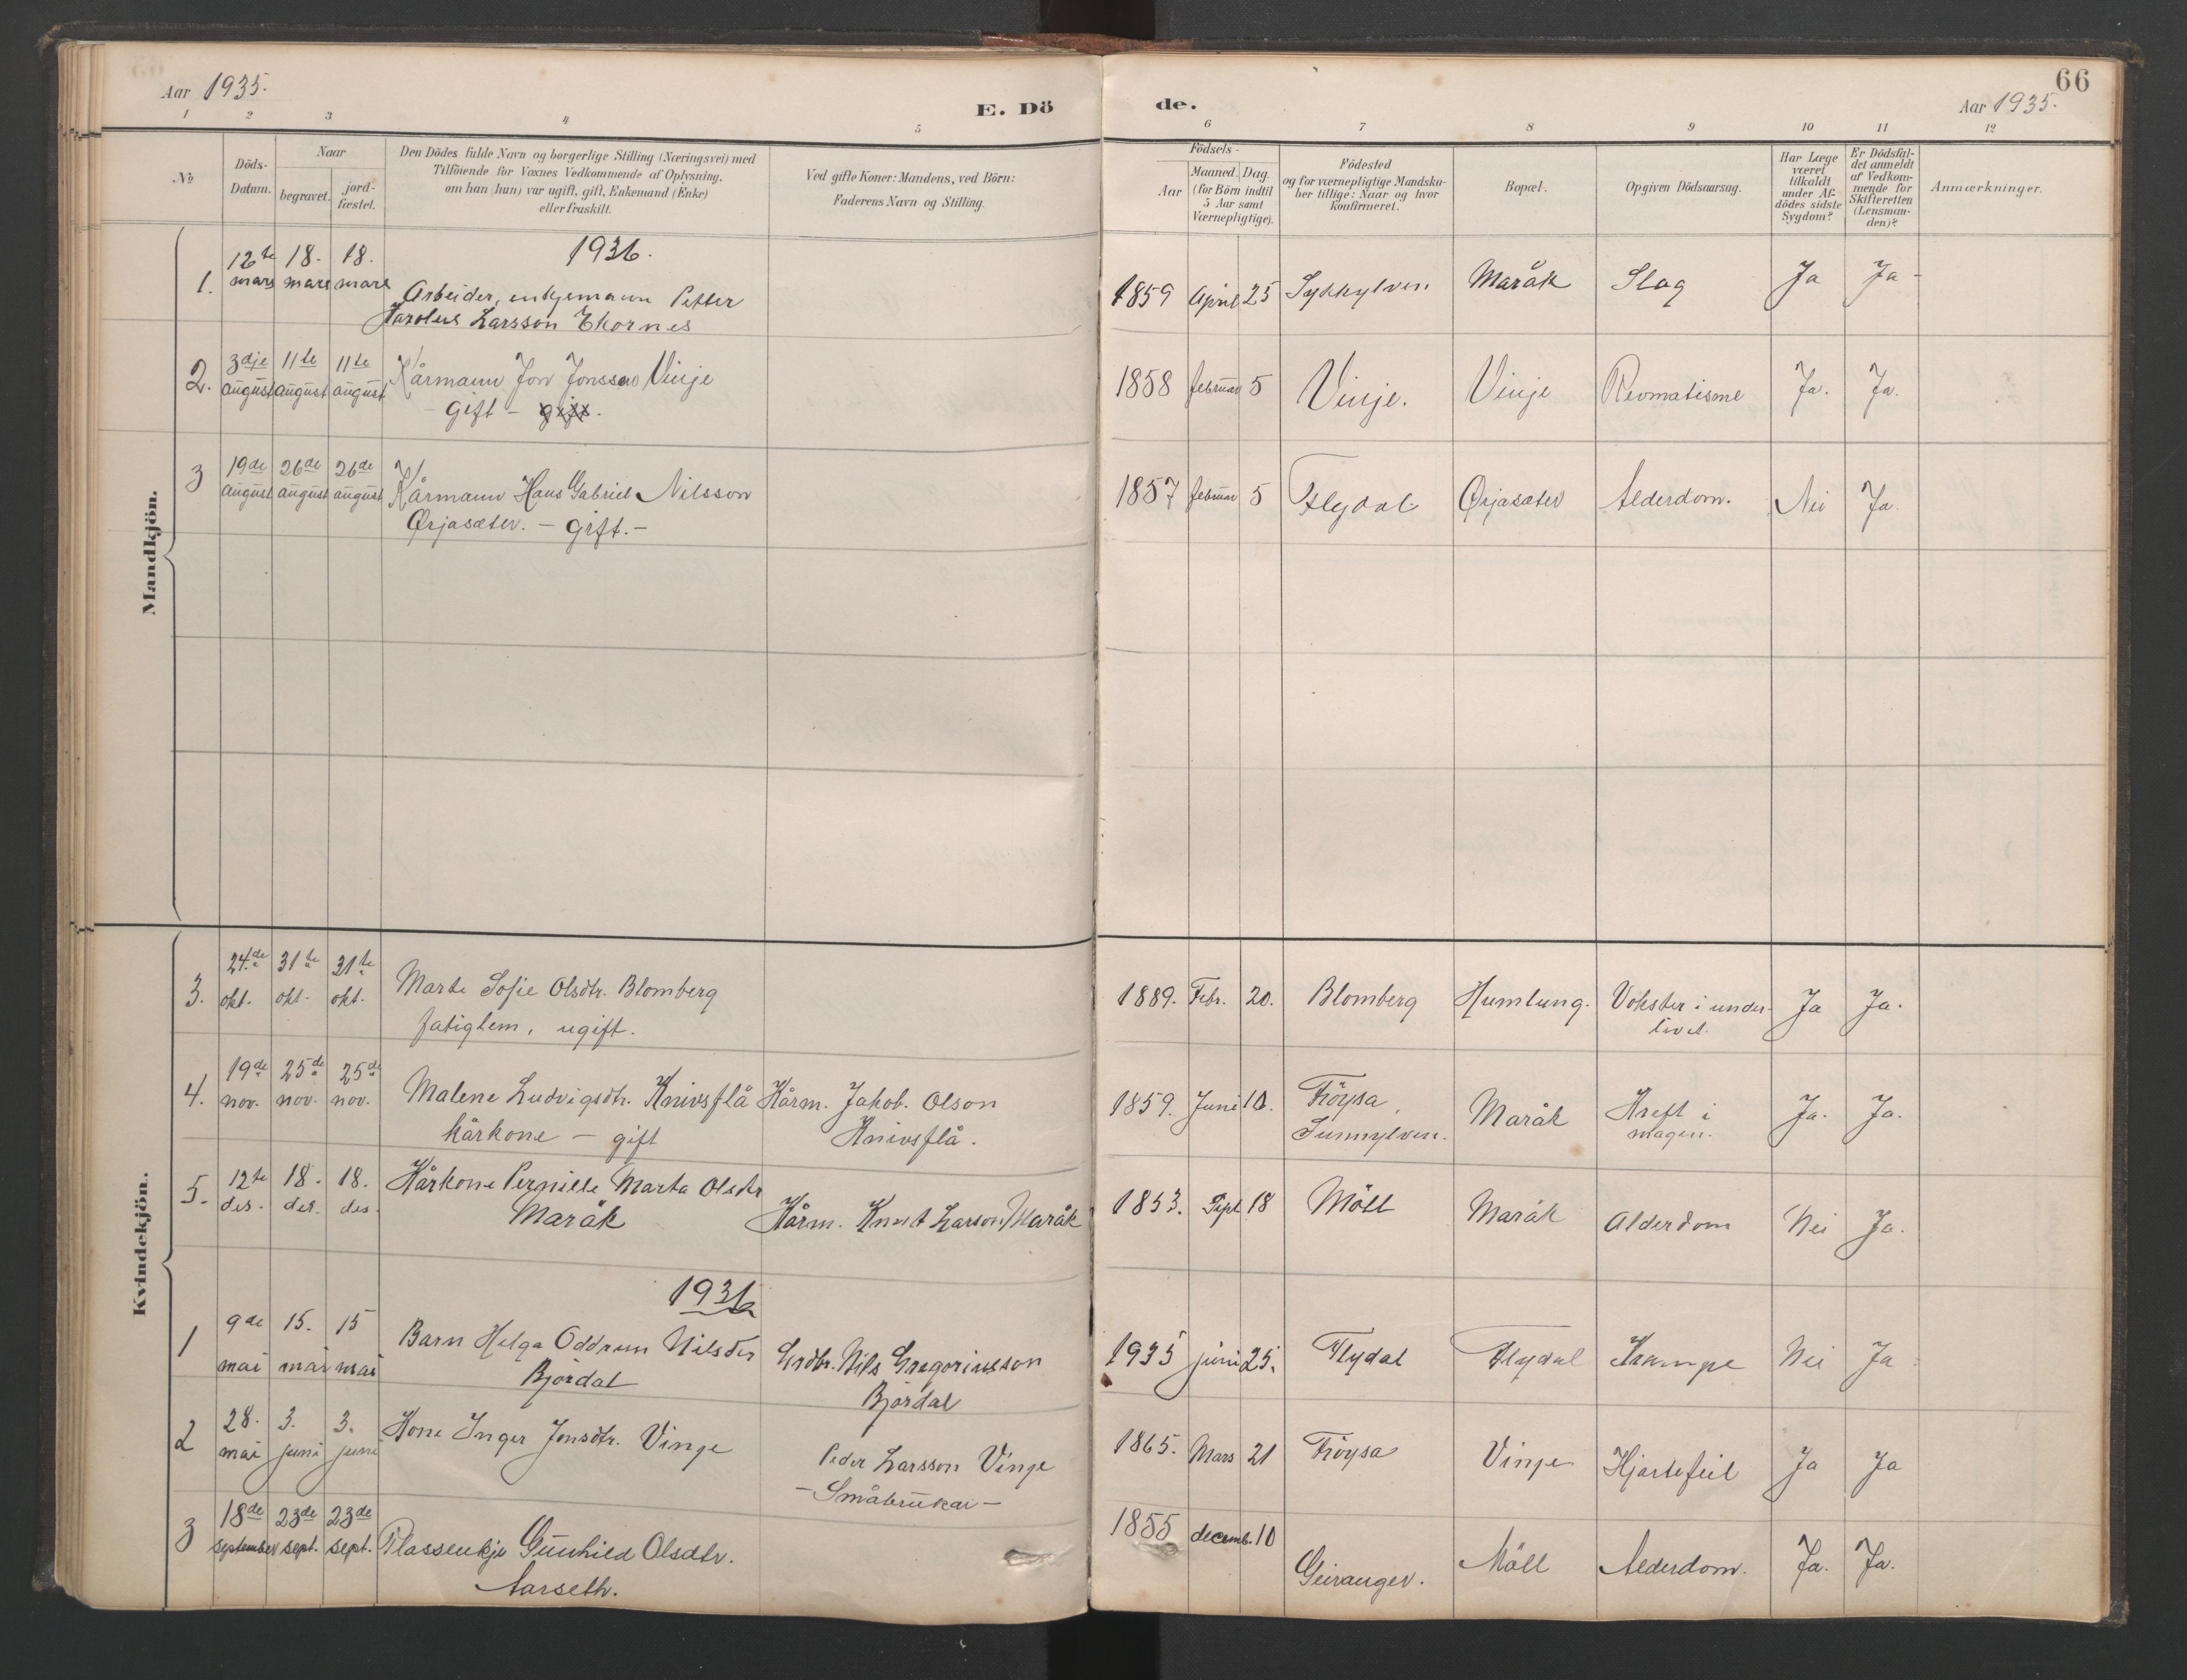 66
Aar 1935.
E. Dö de.
Aar 1935.
1 2 3 4 5 6 7 8 9 10 11 12
№
Döds-
Datum.
Naar
begravet.
jord-
fæstet.
Den Dödes fulde Navn og borgerlige Stilling (Næringsvei) med
Tilföiende for Voxnes Vedkommende af Oplysning,
om han (hun) var ugift, gift, Enkemand (Enke)
eller fraskilt.
Ved gifte Koner: Mandens, ved Börn:
Faderens Navn og Stilling.
Födsels-
Aar
Maaned. Dag.
(for Börn indtil
5 Aar samt
Værnepligtige).
Födested
og for værnepligtige Mandska-
ber tillige: Naar og hvor
konfirmeret.
Bopæl.
Opgiven Dödsaarsag.
Har Læge
været
tilkaldt
under Af-
dödes sidste
Sygdom?
Er Dödsfal-
det anmeldt
af Vedkom-
mende for
Skifteretten
(Lensman-
den)?
Anmærkninger.
Mandkjön.
1936.
1. 12te mars 18. mars 18. mars
Arbeider, enkjemann Petter
Karolus Larsson Ekornes
1859 April 25 Sykkylven Maråk Slag Ja Ja -
2. 3dje august 11te august 11te august
Kårmann Jon Jonsson Vinje
- gift - gift.
1858 februar 5 Vinje. Vinje Revmatisme Ja. Ja.
3 19de august 26de august 26de august
Kårmann Hans Gabriel Nilsson
Ørjasæter. - gift. -
1857 februar 5 Flydal Ørjasæter Alderdom. Nei Ja.
Kvindekjön.
3. 24.de okt. 31te okt. 31te okt.
Marte Sofie Olsdtr. Blomberg
fatiglem, ugift.
1889. Febr. 20. Blomberg Humlung. Vokster i under-
livet. Ja Ja.
4. 19de nov. 25de nov. 25de nov.
Malene Ludvigsdtr. Knivsflå Kårm. Jakob Olson
kårkone - gift Knivsflå.
1859. Juni 10. Frøysa,
Sunnylven. Maråk Kreft i
magen. Ja. Ja.
5. 12te des. 18. des. 18. des.
Kårkone Pernille Marta Olsdtr
Maråk Kårm. Knut Larson Maråk
1853. Sept 18 Möll Maråk Alderdom Nei Ja.
1936
1 9de mai 15. mai 15 mai
Barn Helga Oddrun Nilsdtr Grdbr. Nils Gregoriusson
Bjørdal Bjørdal
1935 juni 25. Flydal Flydal Krampe Nei Ja
2 28. mai 3. juni 3. juni
Kone Inger Jonsdtr. Vinge Peder Larsson Vinge
- Småbrukar -
1865. Mars 21 Frøysa Vinge Hjartefeil Ja Ja
3 18de september 23de sept. 23de sept.
Plassenkje Gunhild Olsdtr.
Aarseth.
1855 decemb. 10 Geiranger. Möll Alderdom. Ja. Ja.